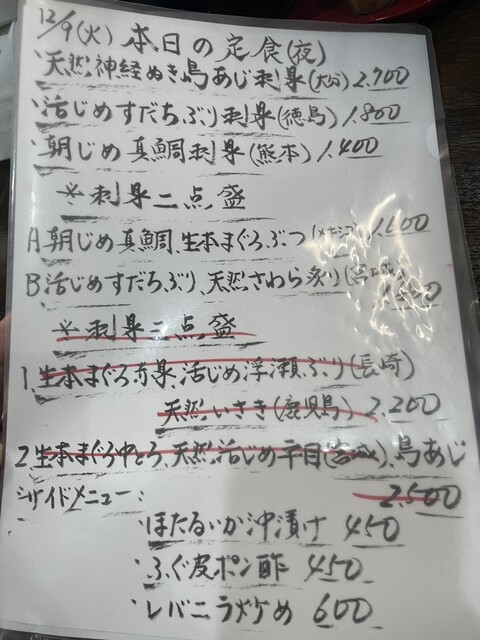 12/9(火) 本日の定食(夜)
・天然神経ぬき島あじ刺身(大分) 2,700
・活じめすだちぶり刺身(徳島) 1,800
・朝じめ真鯛刺身(熊本) 1,400
※刺身二点盛
A朝じめ真鯛、生本まぐろぶつ(メキシコ) 1,600
B活じめすだちぶり、天然さわら炙り(宮城)
※刺身二点盛
1.生本まぐろ赤身、活じめ浮瀬ぶり(長崎)
天然いさき(鹿児島) 2,200
2.生本まぐろ中とろ、天然活じめ平目(宮城)、島あじ
2,500
サイドメニュー:
・ほたるいか沖漬け 450
・ふぐ皮ポン酢 450
・レバニラ炒め 600